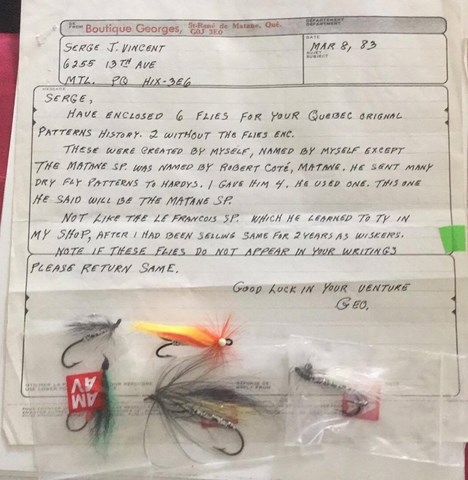 From Boutique Georges, St-René de Matane, Qué.
G0J 3E0
DEPARTEMENT
DEPARTMENT
SERGE J. VINCENT
DATE
MAR 8, 83
6255 13TH AVE
SUBJECT
MTL. PQ H1X-3E6
MESSAGE
SERGE,
HAVE ENCLOSED 6 FLIES FOR YOUR QUEBEC ORIGNAL
PATTERNS HISTORY. 2 WITHOUT THE FLIES ENC.
THESE WERE CREATED BY MYSELF, NAMED BY MYSELF EXCEPT
THE MATANE SP. WAS NAMED BY ROBERT COTÉ, MATANE. HE SENT MANY
DRY FLY PATTERNS TO HARDYS. I GAVE HIM 4. HE USED ONE. THIS ONE
HE SAID WILL BE THE MATANE SP.
NOT LIKE THE LE FRANCOIS SP. WHICH HE LEARNED TO TY IN
MY SHOP, AFTER I HAD BEEN SELLING SAME FOR 2 YEARS AS WISKERS.
NOTE IF THESE FLIES DO NOT APPEAR IN YOUR WRITINGS
PLEASE RETURN SAME.
GOOD LUCK IN YOUR VENTURE
GEO.
AM
AV